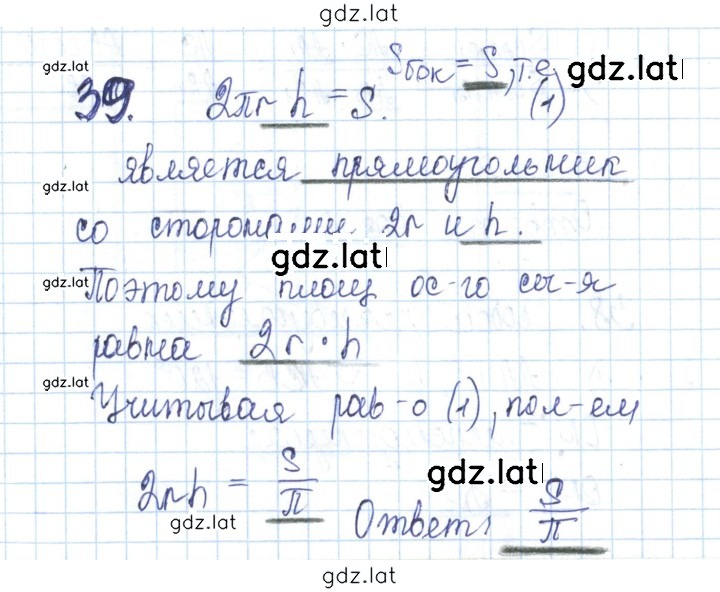 gdz.lat
gdz.lat
Sбок = S, т.е. gdz.lat
39. 2πr h = S. (1)
является прямоугольник
gdz.lat
со сторонами 2r и h.
gdz.lat
gdz.lat
Поэтому площ ос-го сеч-я
равна 2r · h
gdz.lat
Учитывая рав-о (1), пол-ем
2rh = S/π gdz.lat
gdz.lat
Ответ: S/π
gdz.lat